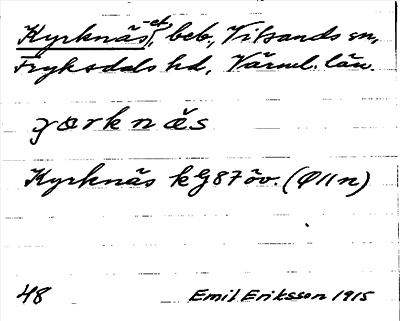 Kyrknäs, -et, beb., Vitsands sn,
Fryksdals hd, Värml. län.
yɷrknäs
Kyrknäs kG87öv. (Ø11n)
48 Emil Eriksson 1915